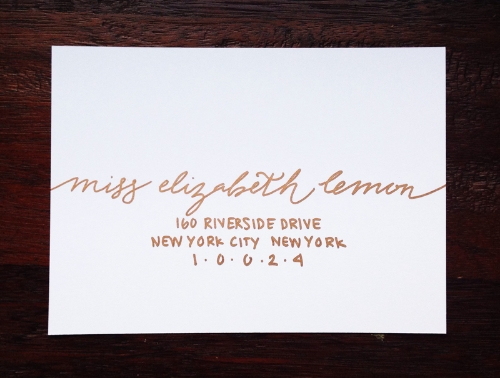 miss elizabeth lemon
160 RIVERSIDE DRIVE
NEW YORK CITY NEW YORK
1·0·0·2·4